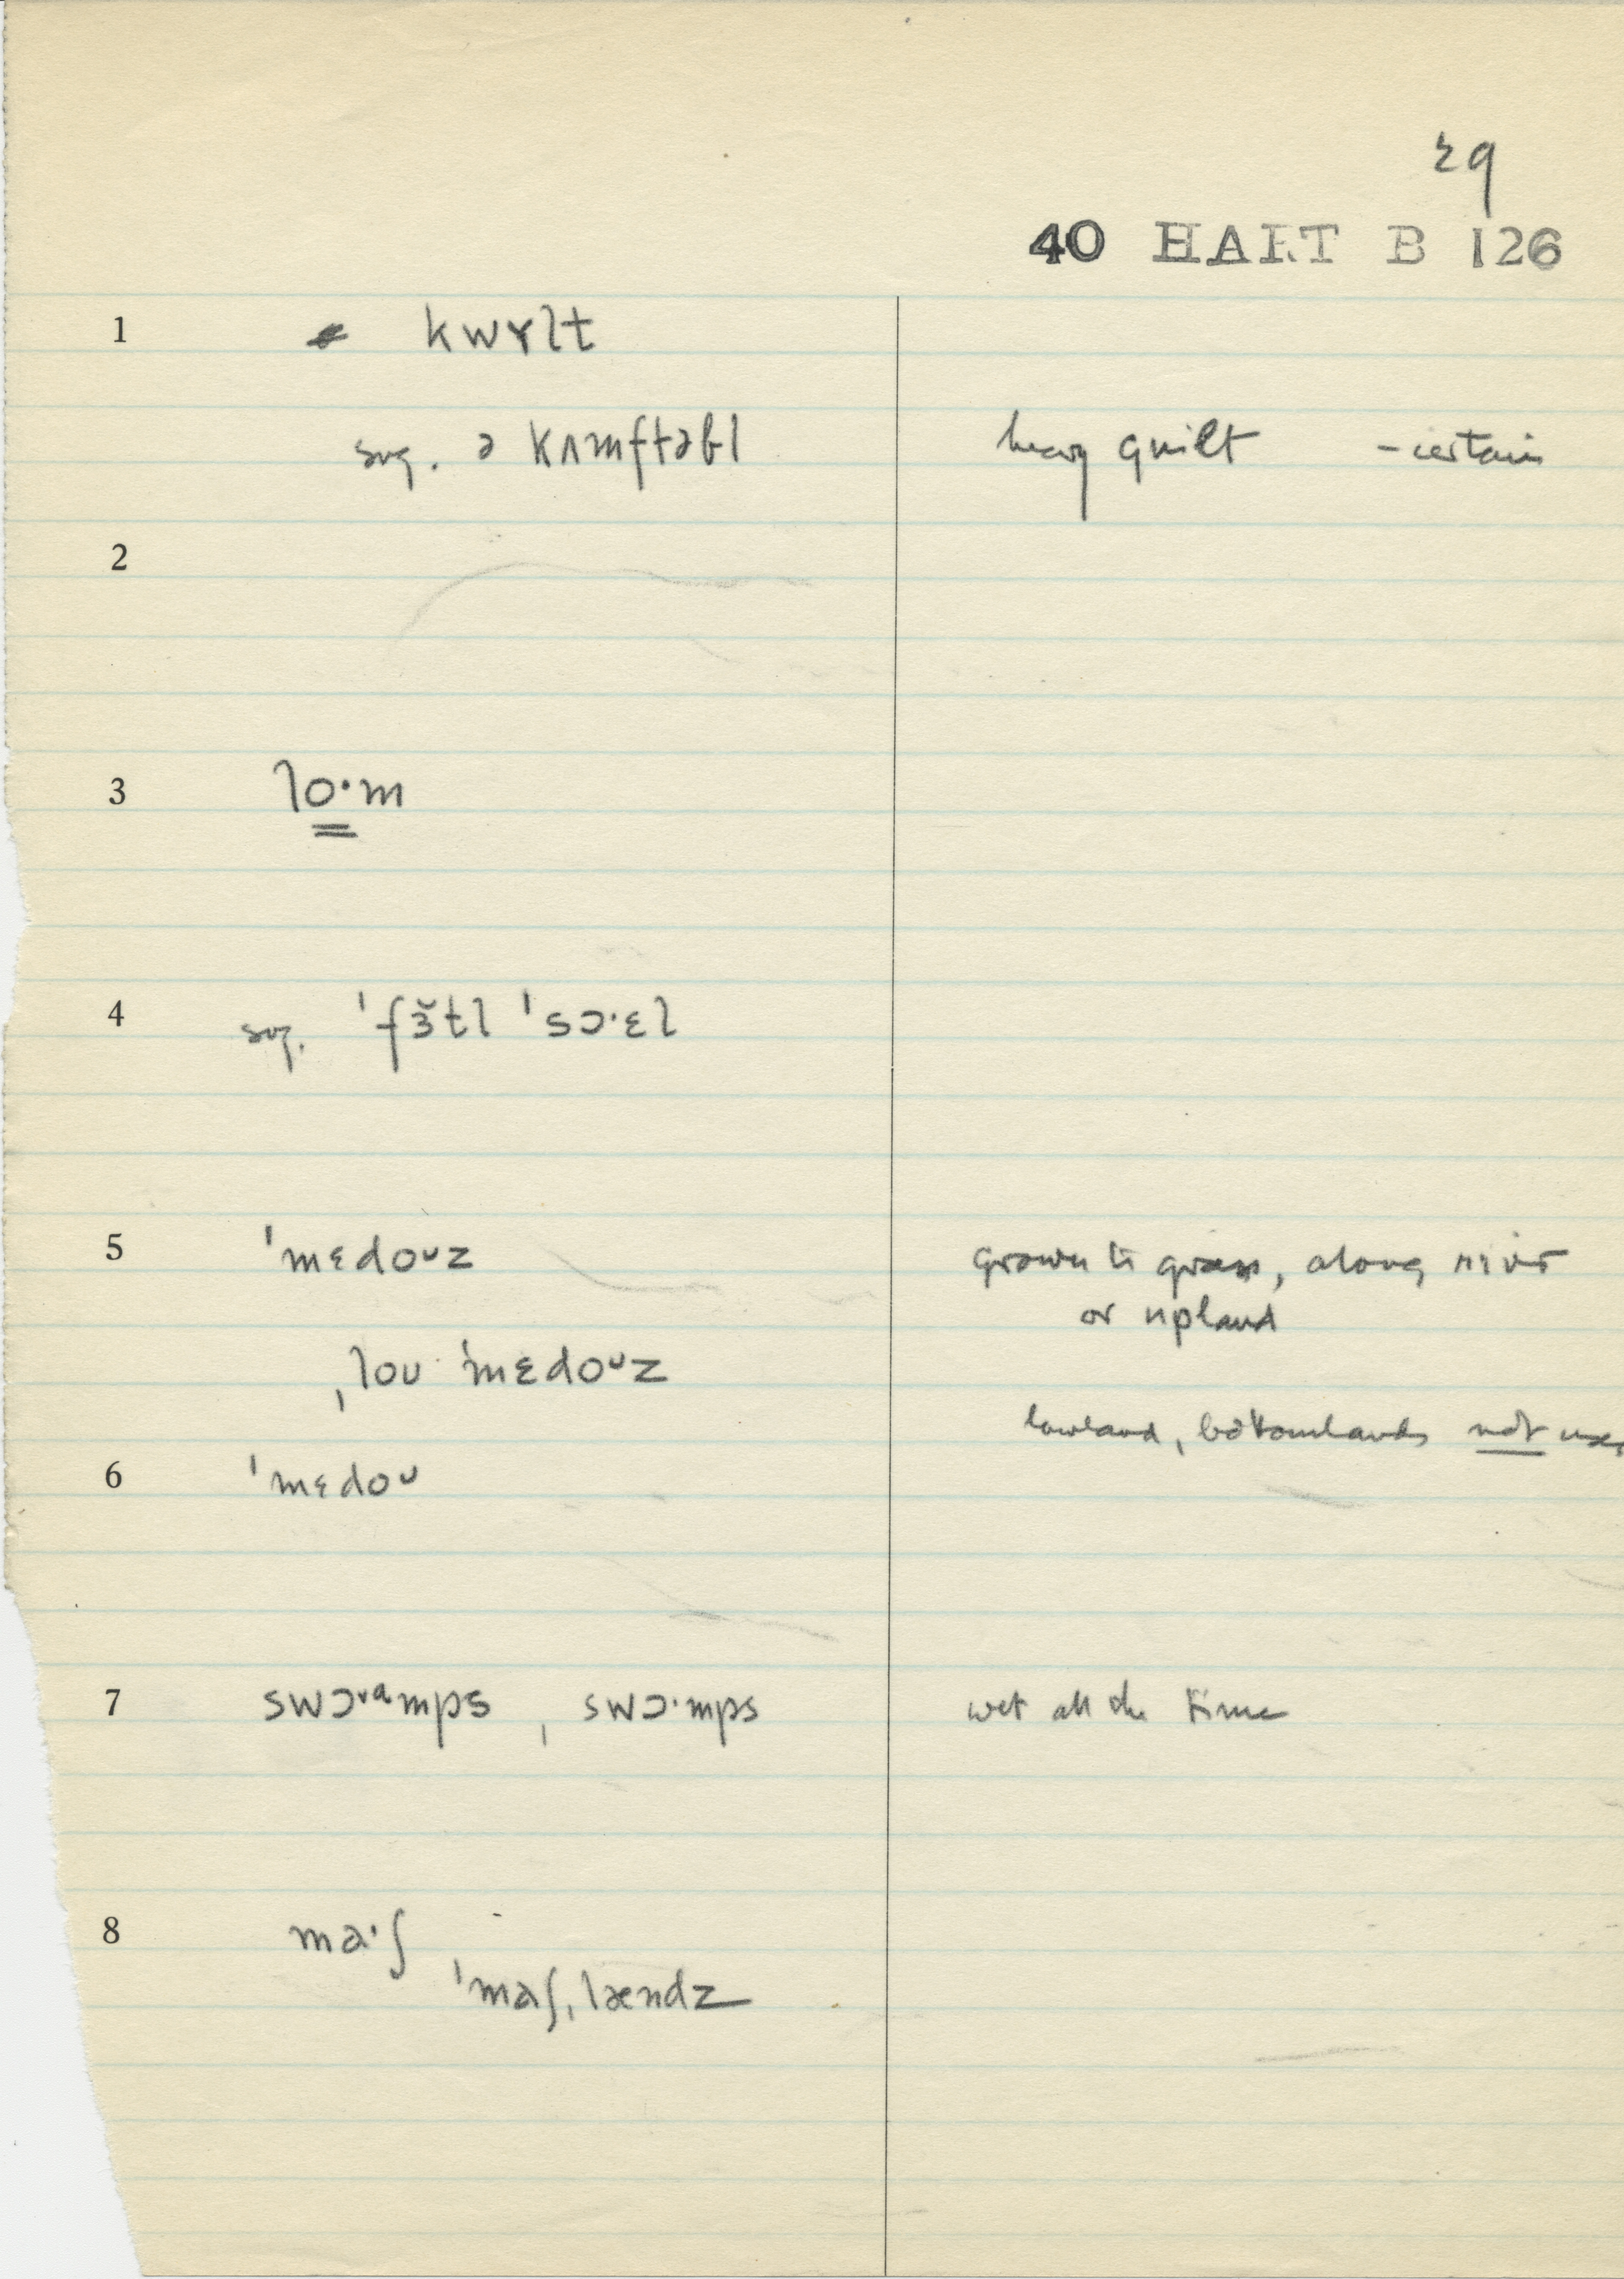 29
40 HART B 126
1 kwɤlt
sug. ə kʌmftəbl heavy quilt – certain
2
3 lo·m
4 sug. ˈfɜ̆tl ˈsɔ·ɛl
5 ˈmɛdoᴜz grown to grass, along river
or upland
ˌloᴜ ˈmɛdoᴜz
lowland, bottomlands not
6 ˈmɛdoᴜ
7 swɔᵛᵃmps , swɔ·mps wet all the time
8 ma·ʃ
ˈmaʃˌlændz